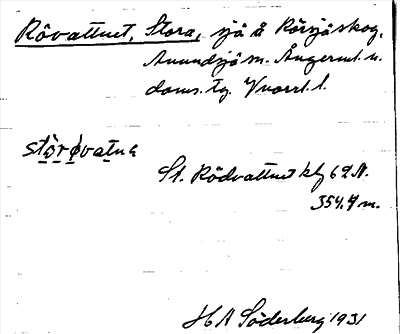 Rövattnet, Stora, sjö å Rörsjöskog,
Anundsjö sn. Ångerml. n.
doms. tg. Vnorrl. l.
störøvatnə
St. Rödvattnet kbf 62 N.
354.4 m.
H A Söderberg 1931